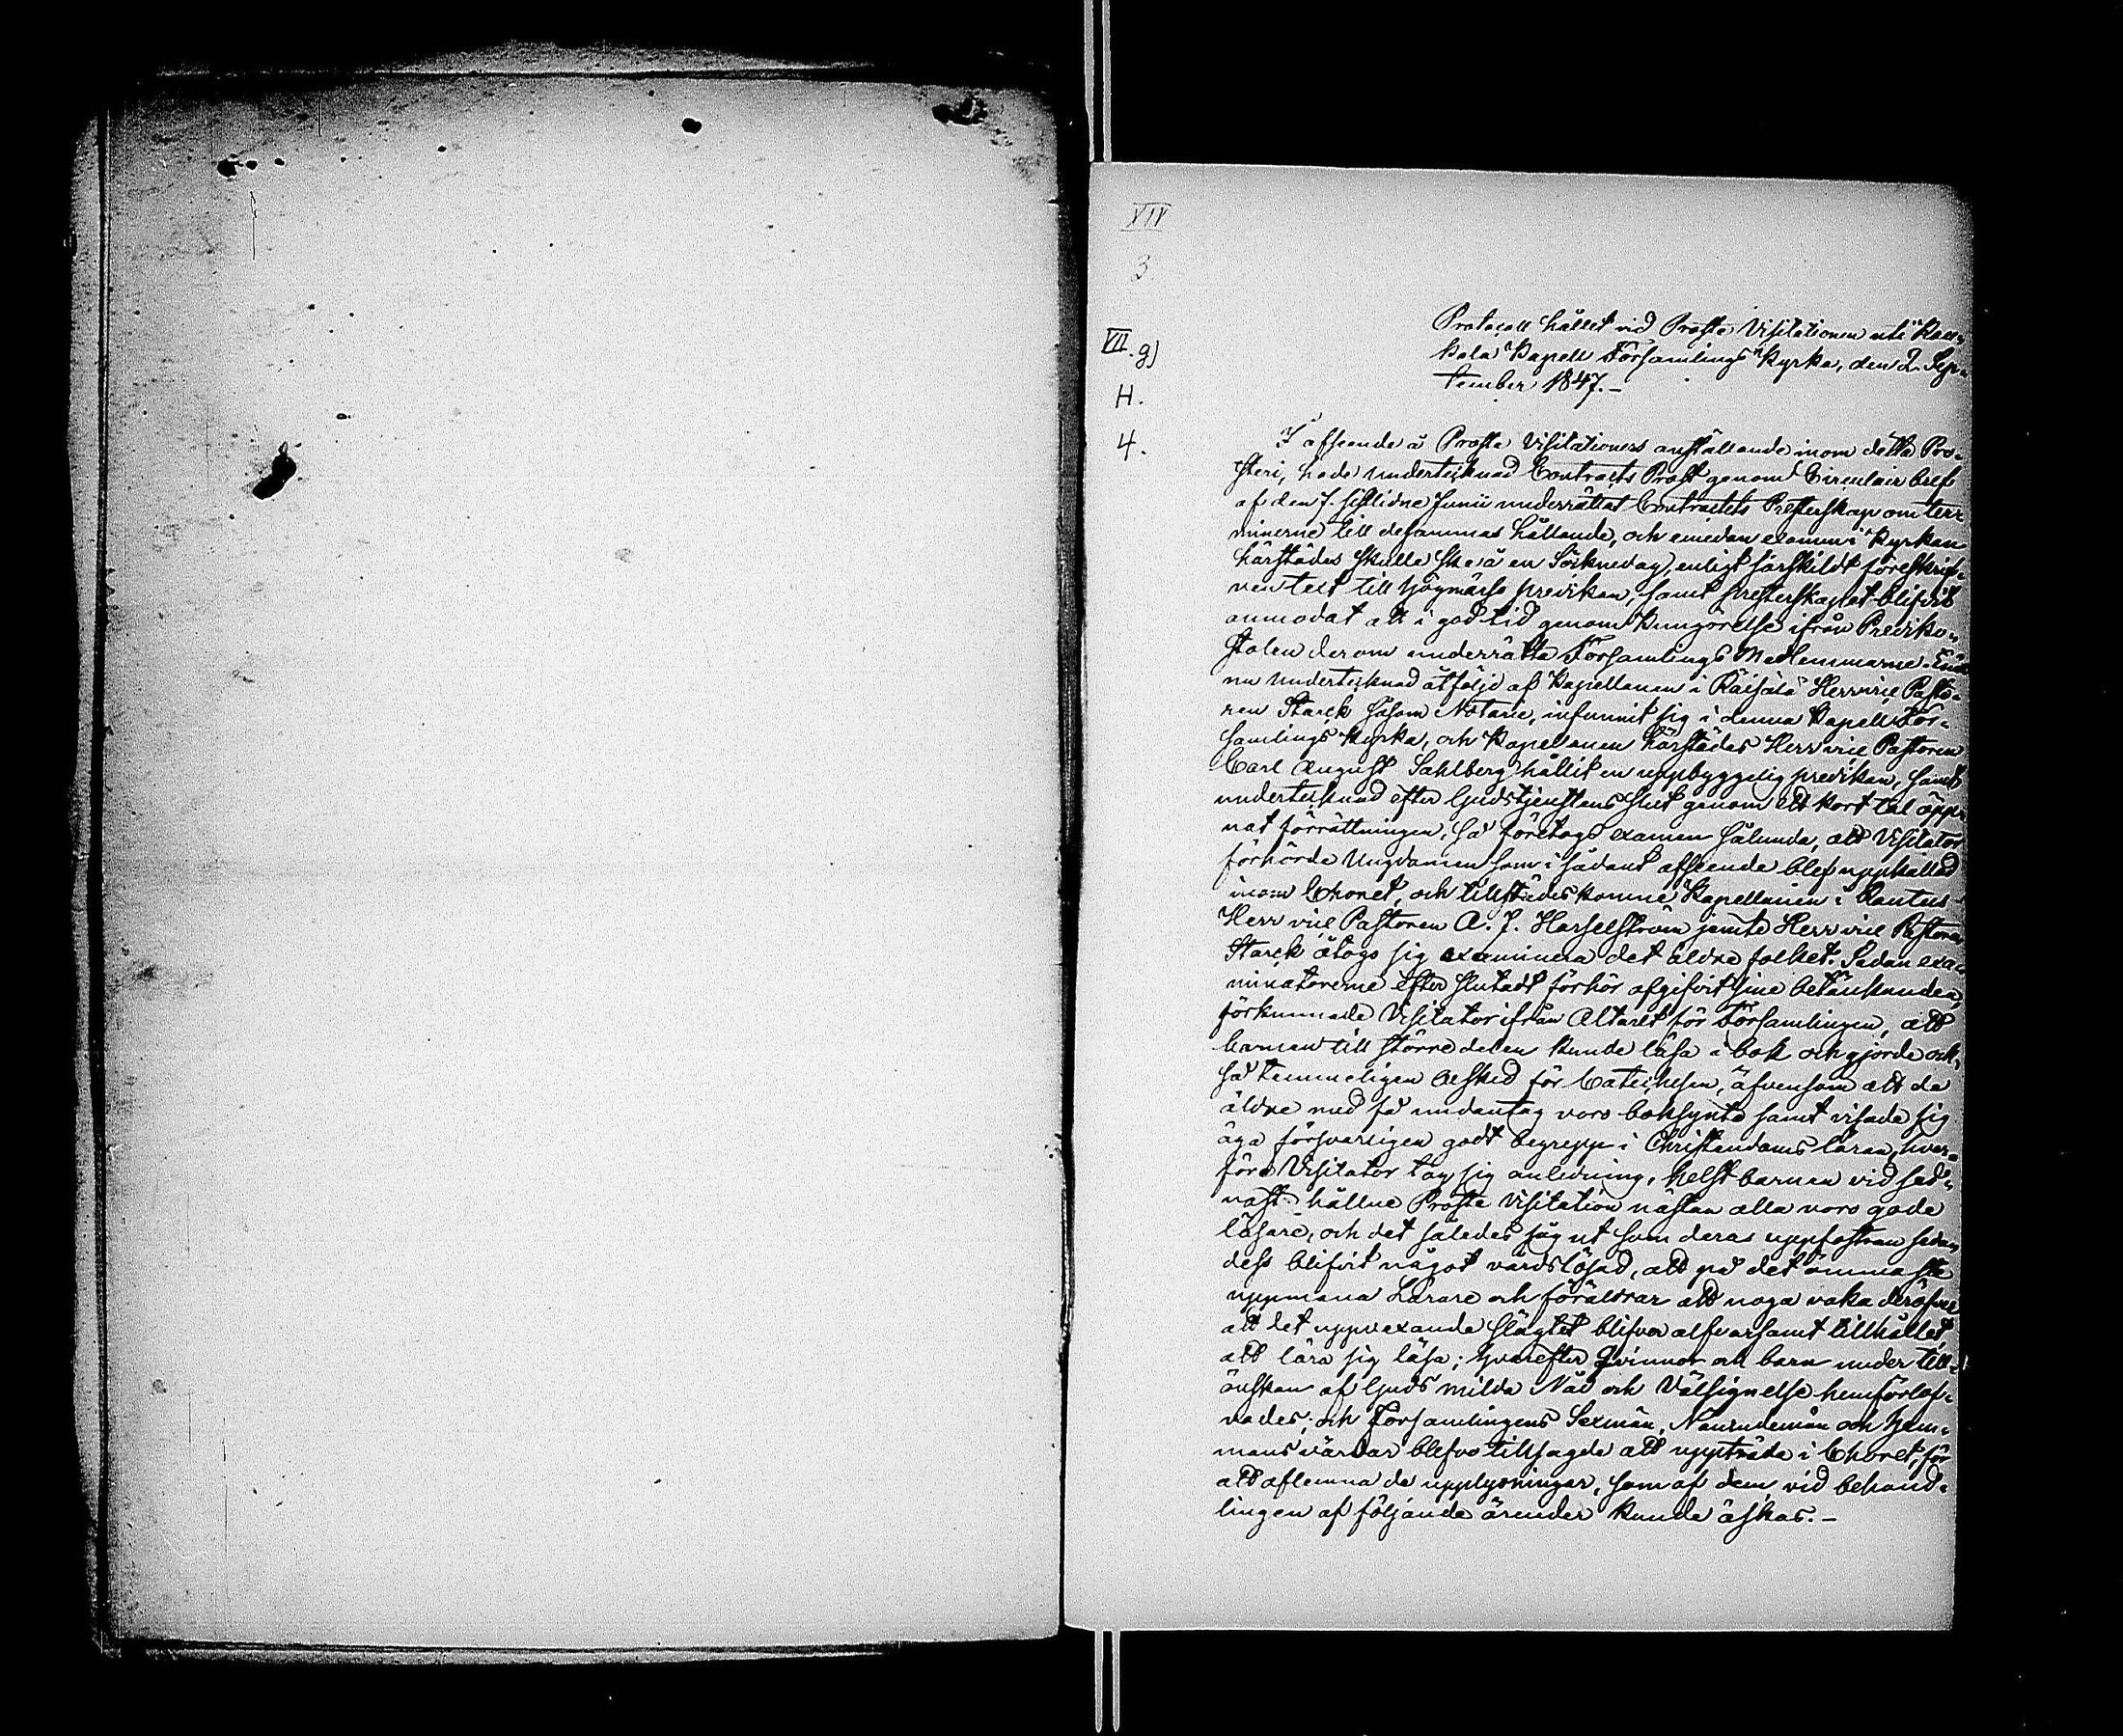 XIV
3
VII. g)
H.
4.
Protocoll hållet vid Proste Visitationen uti Kau-
kola Kapell Församlings Kyrka, den 2. Sep-
tember 1847.-
I afseende å Proste Visitationers anställande inom detta Pro-
steri, hade undertecknad Contracts Prost genom Circulair bref
af den 7. sistlidne Junii underrättat Contractets Presterskap om ter-
minerne till desammas hållande, och emedan examen i Kyrkan
härstädes skulle ske å en Söckneday, enligt särskildt föreskrif-
ven text till högmässo predikan, samt presterskapet blifvit
anmodat att i god tid genom Kungörelse ifrån Prediko-
stolen derom underrätta Församlings Medlemmarne.
nu undertecknad åtföljd af Kapellanen i Räisälä Herr vice Pasto-
ren Starck såsom Notarie, infunnit sig i denna Kapell För-
samlings Kyrka, och Kapellanen härstädes Herr vice Pastoren
Carl August Sahlberg hållit en uppbyggelig predikan, samt
undertecknad efter Gudstjenstens slut genom ett kort tal öpp-
nat förrättningen, så företogs examen sålunda, att Visitator
förhörde Ungdomen som i sådant afseende blef uppkallad
inom Choret, och tillstädeskomne Kapellanen i Rautus
Herr vice Pastoren A. J. Hasselström jemte Herr vice Pastoren
Starck åtogo sig examinera det äldre folket. Sedan exa-
minatorerne efter slutadt förhör afgifvit sine betänkanden,
förkunnade Visitator ifrån Altaret för Församlingen, att
barnen till större delen kunde läsa i bok och gjorde ock-
så temmeligen besked för Catechesen, äfvensom att de
äldre med få undantag voro boksynte samt visade sig
äga försvarligen godt begrepp i Christendoms läran, hvar-
före Visitator tog sig anledning, helst barnen vid sed-
nast hållne Proste Visitation nästan alla voro gode
läsare, och det således såg ut som deras uppfostran sedan
dess blifvit något vårdslösad, att på det ömmaste
uppmana Lärare och föräldrar att noga vaka deröfver
att det uppvexande slägtet blifver alfvarsamt tillhållet
att lära sig läsa; hvarefter Qvinnor och barn under till-
önskan af Guds milda Nåd och Välsignelse hemförlof-
vades; och Församlingens Sexmän, Nämndemän och Hem-
mans värdar blefvo tillsagde att uppträda i Choret, för
att aflemna de upplysningar, som af dem vid behand-
lingen af följande ärender kunde äskas.-